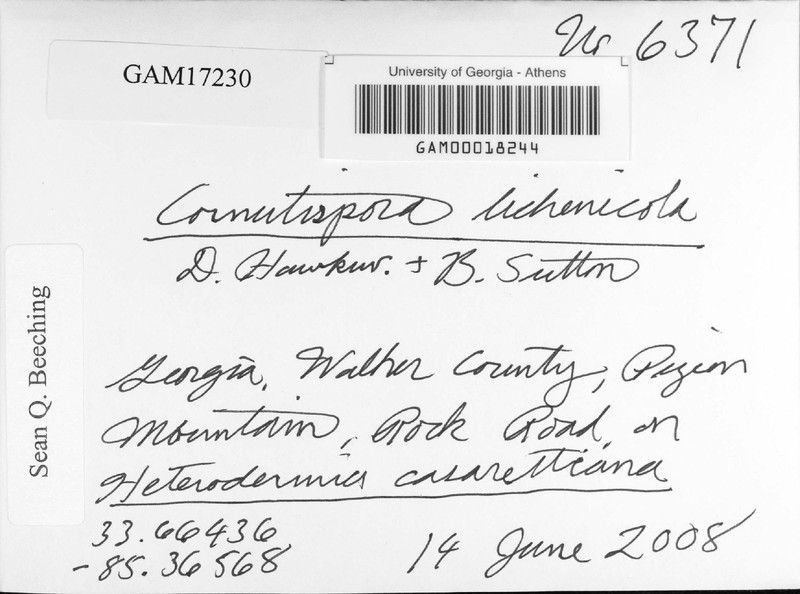 Nr 6371
GAM17230
University of Georgia - Athens
GAM00018244
Cornutispora lichenicola
D. Hawksw. + B. Sutton
Sean Q. Beeching
Georgia, Walker County, Pigeon
Mountain, Rock Road, on
Heterodermia casarettiana
33.66436
-85.36568
14 June 2008